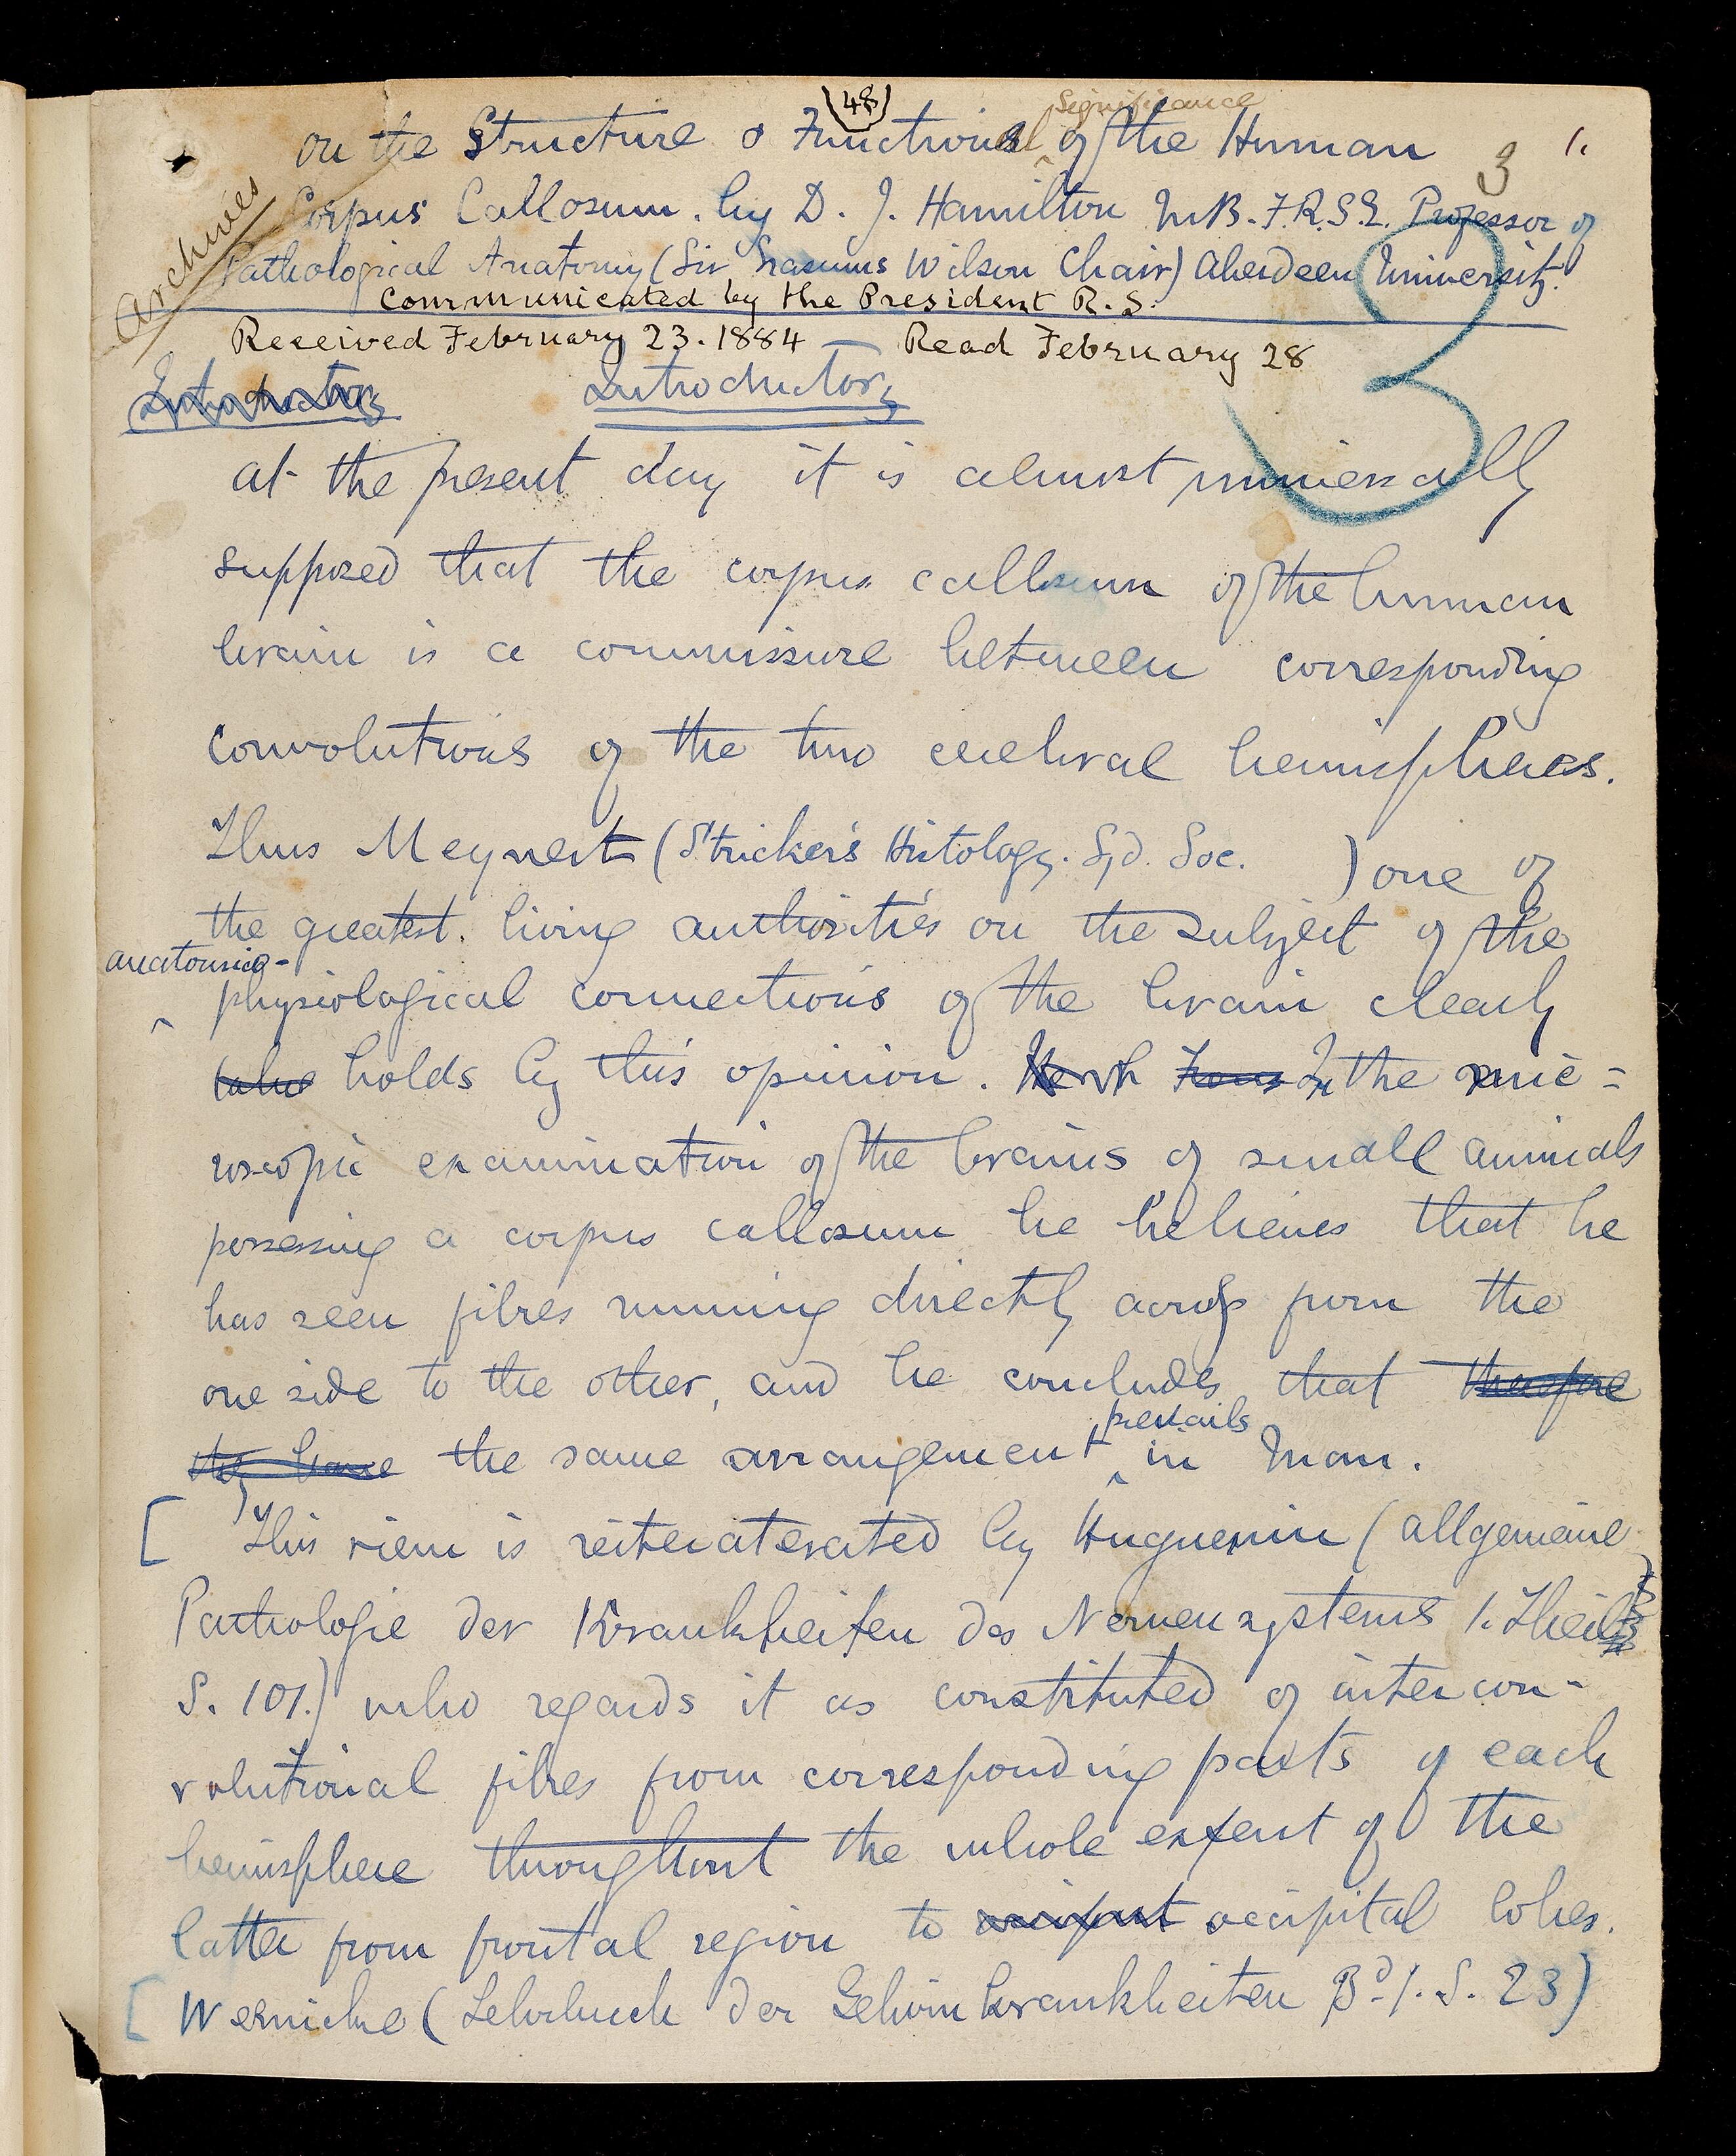 (48)
Significance
On the Structure & Functional of the Human
3
1.
Corpus Callosum. by D. J. Hamilton M.B. F.R.S.E. Professor of
Archives
Pathological Anatomy (Sir Erasmus Wilson Chair) Aberdeen University.
Communicated by the President R.S.
3
Received February 23. 1884 — Read February 28
Introductory Introductory
At the present day it is almost universally
supposed that the corpus callosum of the human
brain is a commissure between corresponding
convolutions of the two cerebral hemispheres.
Thus Meynert (Stricker's Histology. Syd. Soc. ) one of
the greatest living authorities on the subject of the
anatomico-
physiological connections of the brain clearly
holds by this opinion. From In the mic=
roscopic examination of the brains of small animals
possessing a corpus callosum he believes that he
has seen fibres running directly across from the
one side to the other, and he concludes that therefore
prevails
they have the same arrangement in Man.
[ This view is reiteraterated by Huguenin (Allgemeine
Pathologie der Krankheiten des Nervensystems 1. Theil
S. 101.) who regards it as constituted of intercon-
volutional fibres from corresponding parts of each
hemisphere throughout the whole extent of the
latter from frontal region to occiput occipital lobes.
[ Wernicke (Lehrbuch der Gehirnkrankheiten Bd. 1. S. 23)